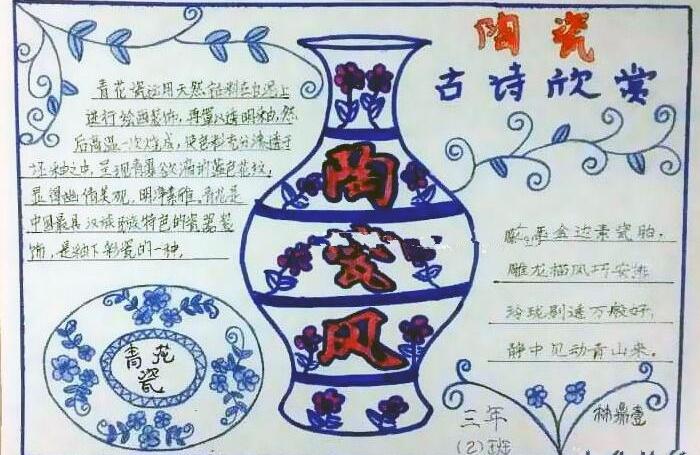 陶瓷
古诗欣赏
青花瓷运用天然钴料在白泥上
进行绘画装饰，再罩以透明釉，然
后高温一次烧成，使色料充分渗透于
坯釉之中，呈现青翠欲滴的蓝色花纹，
显得幽倩美观，明净素雅。青花是
中国最具汉族民族特色的瓷器装
饰，是釉下彩瓷的一种，
陶
瓷
风
金边素瓷胎，
雕龙描凤巧安排
玲珑剔透万般好，
静中见动青山来。
青花
瓷
三年
（2）班
林鼎壹